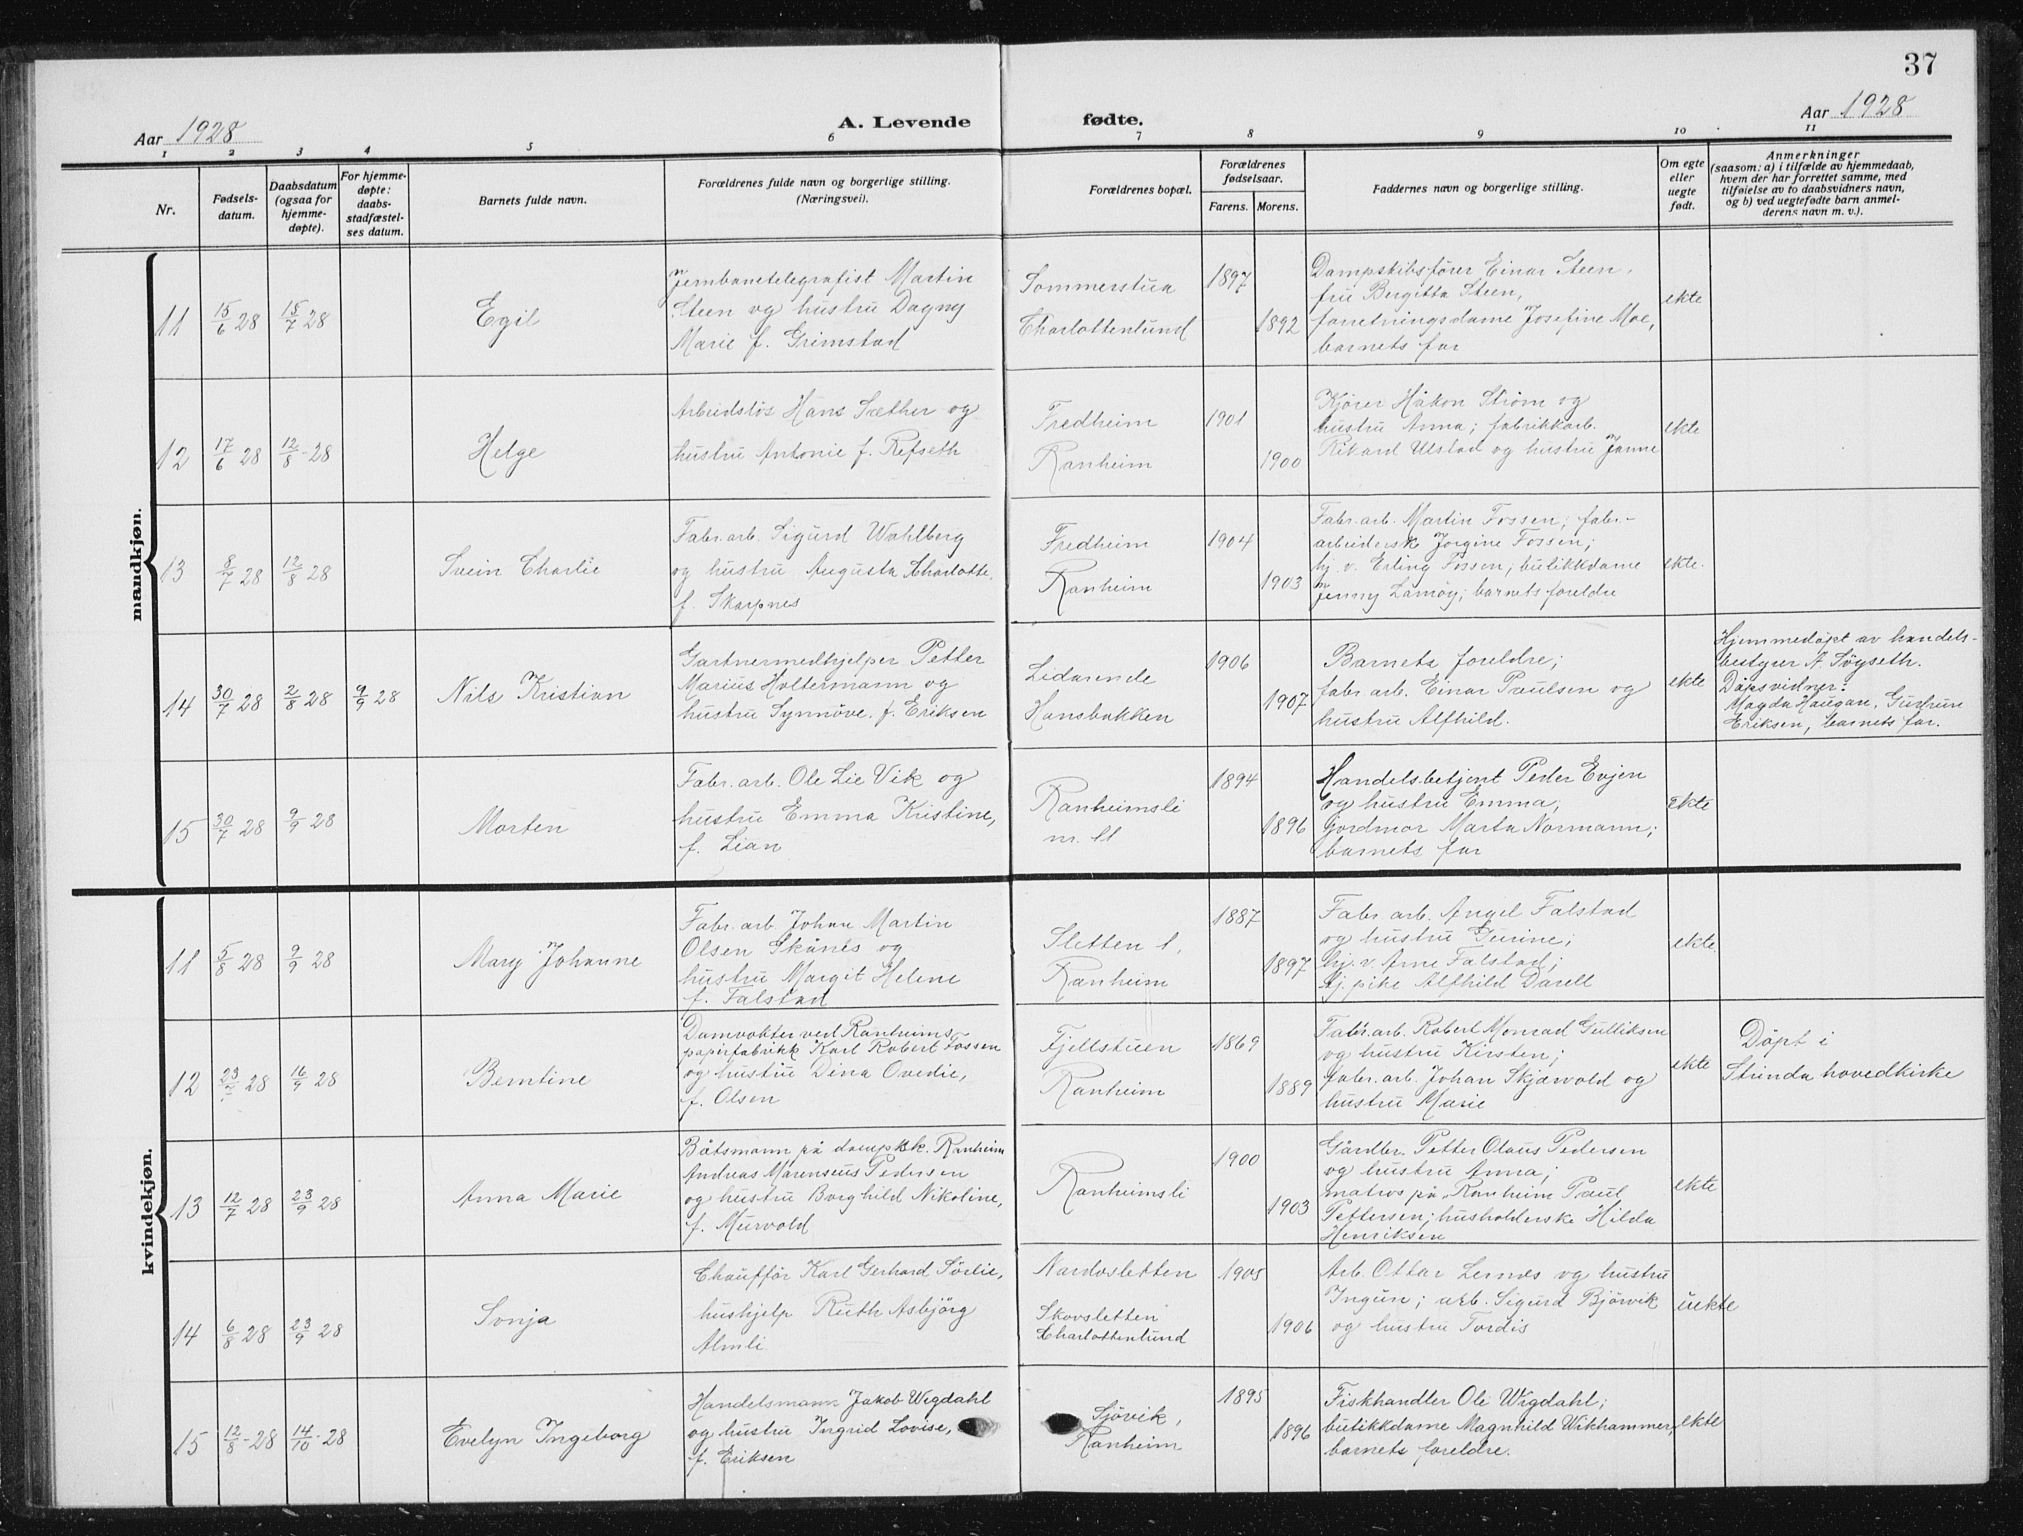 37
Aar 1928
A. Levende fødte.
Aar 1928
1 2 3 4 5 6 7 8 9 10 11
Nr.
Fødsels-
datum.
Daabsdatum
(ogsaa for
hjemme-
døpte).
For hjemme-
døpte:
daabs-
stadfæstel-
ses datum.
Barnets fulde navn.
Forældrenes fulde navn og borgerlige stilling.
(Næringsvei).
Forældrenes bopæl.
Forældrenes
fødselsaar.
Farens. Morens.
Faddernes navn og borgerlige stilling.
Om egte
eller
uegte
født.
Anmerkninger
(saasom: a) i tilfælde av hjemmedaab,
hvem der har forrettet samme, med
tilføielse av to daabsvidners navn,
og b) ved uegtefødte barn anmel-
derens navn m. v.).
mandkjøn.
11
15/6 28
15/7 28
Egil
Jernbanetelegrafist Martin
Steen og hustru Dagny
Marie f. Grimstad
Sommerstua
Charlottenlund
1897
1892
Dampskibsfører Einar Steen,
frue Bergitta Steen,
forretningsdame Josefine Moe,
barnets far
ekte
12
17/6 28
12/8 - 28
Helge
Arbeidsløs Hans Sæther og
hustru Antonie f. Refseth
Fredheim
Ranheim
1901
1900
Kjører Håkon Strøm og
hustru Anna; fabrikkarb.
Rikard Ulstad og hustru Janne
ekte
13
8/7 28
12/8 28
Svein Charlie
Fabr. arb. Sigurd Wahlberg
og hustru Augusta Charlotte,
f. Skarpnes
Fredheim
Ranheim
1904
1903
Fabr. arb. Martin Fossen; fabr-
arbeiderske Jorgine Fossen;
hj. v. Erling Fossen; butikkdame
Jenny Lamøy; barnets foreldre
ekte.
14
30/7 28
2/8 28
9/9 28
Nils Kristian
Gartnermedhjelper Petter
Marius Holtermann og
hustru Synnöve f. Eriksen
Lidarende
Hansbakken
1906
1907
Barnets foreldre;
fabr arb. Einar Paulsen og
hustru Alfhild.
ekte
Hjemmedøpt av handels-
bestyrer A. Söyseth.
Dåpsvidner:
Magda Haugan, Gudrun
Eriksen, barnets far.
15
30/7 28
9/9 28
Morten
Fabr. arb. Ole Lie Vik og
hustru Emma Kristine,
f. Lian
Ranheimsli
nr. 11
1894
1896
Handelsbetjent Peder Evjen
og hustru Emma,
Gjordmor Marta Normann;
barnets far
ekte
kvindekjøn.
11
5/8 28
9/9 28
Mary Johanne
Fabr. arb Johan Martin
Olsen Skånes og
hustru Margit Helene
f. Falstad
Sletten 1,
Ranheim
1887
1897
Fabr arb. Angel Falstad
og hustru Gurine;
hj. v. Arne Falstad;
hj. pike Alfhild Darell
ekte
12
28
16/9 28
Berntine
Damvokter ved Ranheims
papirfabrikk Karl Robert Fossen
og hustru Dina Ovedie,
f. Olsen
Fjellstuen
Ranheim
1869
1889
Fabr. arb. Robert Monrad Gulliksen
og hustru Kirsten;
fabr. arb. Johan Skjærvold og
hustru Marie
ekte
Döpt i
Strinda hovedkirke
13
12/7 28
23/9 28
Anna Marie
Båtsmann på dampsk. Ranheim
Andreas Marenseus Pedersen
og hustru Borghild Nikoline,
f. Murvold
Ranheimsli
1900
1903
Gårdbr. Petter Olaus Pedersen
og hustru Anna;
matros på „Ranheim Paul
Pettersen; husholderske Hilda
Henriksen
ekte
14
6/8 28
23/9 28
Sonja
Chauffør Karl Gerhard Sørlie,
hushjelp Ruth Asbjörg
Almli
Nardosletten
Skovsletten
Charlottenlund
1905
1906
Arb. Ottar Lernes og hustru
Ingun; arb. Sigurd Bjørvik
og hustru Tordis
uekte
15
12/8 - 28
14/10 - 28
Evelyn Ingeborg
Handelsmann Jakob Wigdahl
og hustru Ingrid Lovise,
f. Eriksen
Sjövik,
Ranheim
1895
1896
Fiskhandler Ole Wigdahl;
butikkdame Magnhild Wikhammer,
barnets foreldre.
ekte